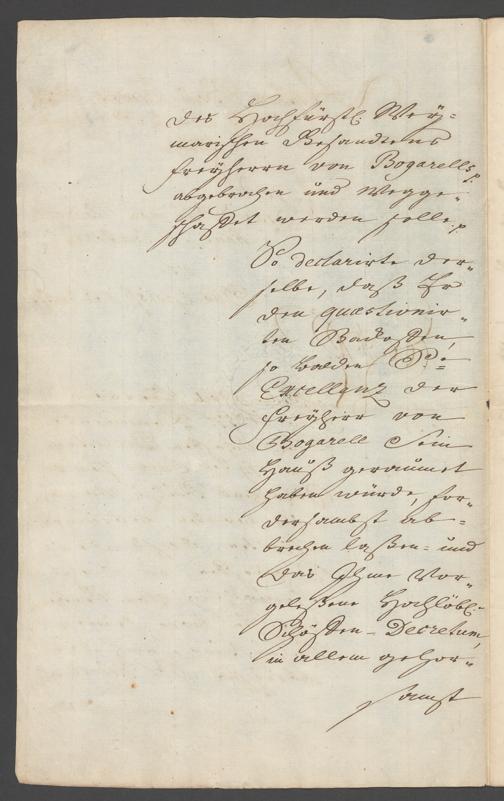 des Hochfürstl. Weÿ=
marischen Gesandtens
Freÿherrn von Bogarells p.
abgebrochen und Wegge=
schaffet werden solle p
So declarirte der=
selbe, daß Er
den quæstionir=
ten Backoffen,
so balden Se.
Excellenz der
Freÿherr von
Bogarell Sein
Hauß geraumet
haben würde, for=
dersambst ab=
brechen laßen= und
das Ihme Vor=
geleßene Hochlöbl.
Schöffen-Decretum,
in allem gehor=
samst